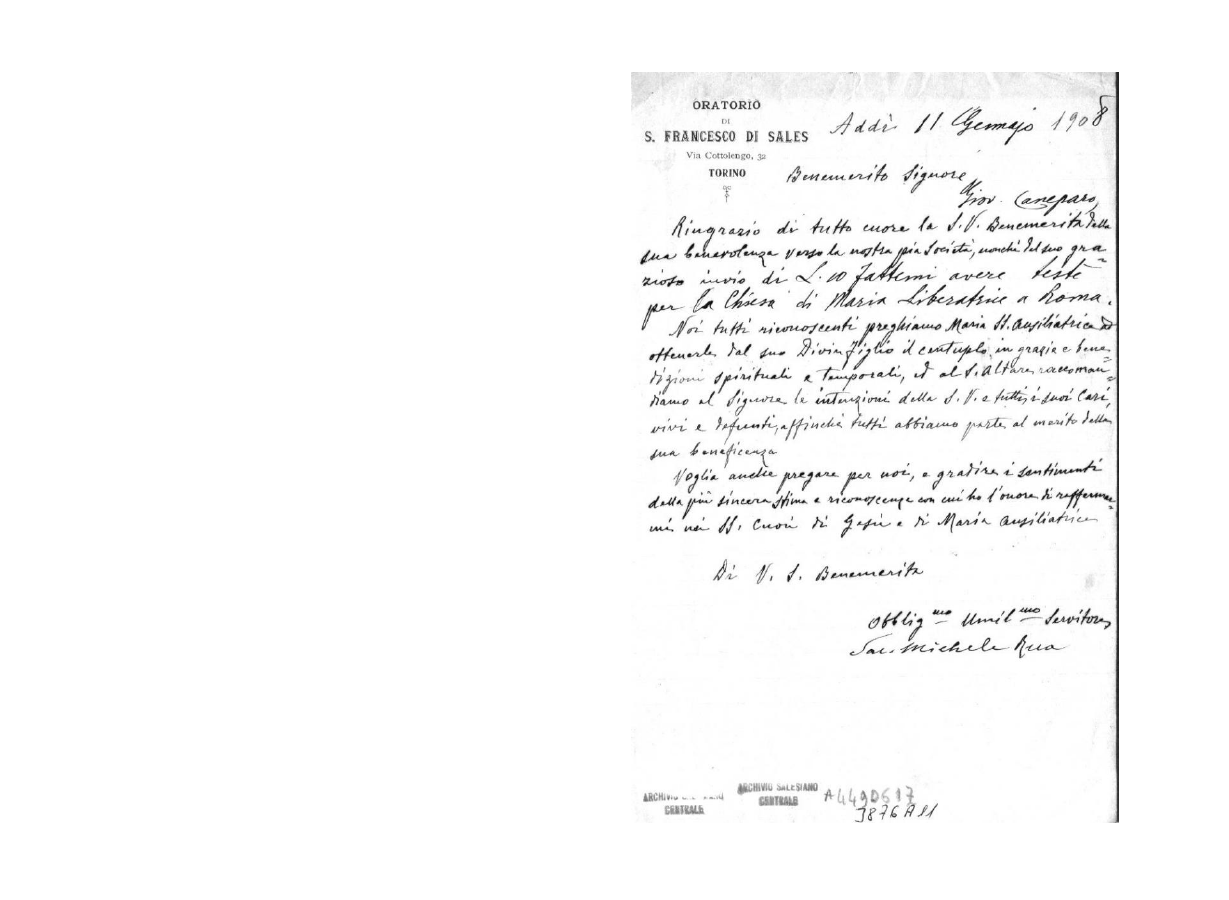 ORATORIO
DI
S. FRANCESCO DI SALES
Via Cottolengo, 32
TORINO
Addì 11 Gennajo 1908
Benemerito Signore
Giov. Caneparo,
Ringrazio di tutto cuore la S.V. Benemerita della
sua benevolenza verso la nostra pia Società, nonchè del suo gra=
zioso invio di L. 10 fattemi avere testè
per la Chiesa di Maria Liberatrice a Roma.
Noi tutti riconoscenti preghiamo Maria SS. Ausiliatrice ad
ottenerle dal suo Divin Figlio il centuplo in grazie e bene=
dizioni spirituali e temporali, ed al S. Altare raccoman=
diamo al Signore le intenzioni della S.V. e tutti i suoi Cari,
vivi e defunti, affinchè tutti abbiamo parte al merito della
sua beneficenza
Voglia anche pregare per noi, e gradire i sentimenti
della più sincera stima e riconoscenza con cui ho l'onore di rafferma=
mi nei SS. Cuori di Gesù e di Maria Ausiliatrice
Di V. S. Benemerita
Obblig mo Umil mo Servitore
Sac. Michele Rua
ARCHIVIO
CENTRALE
ARCHIVIO SALESIANO
CENTRALE
A4490617
3876A11